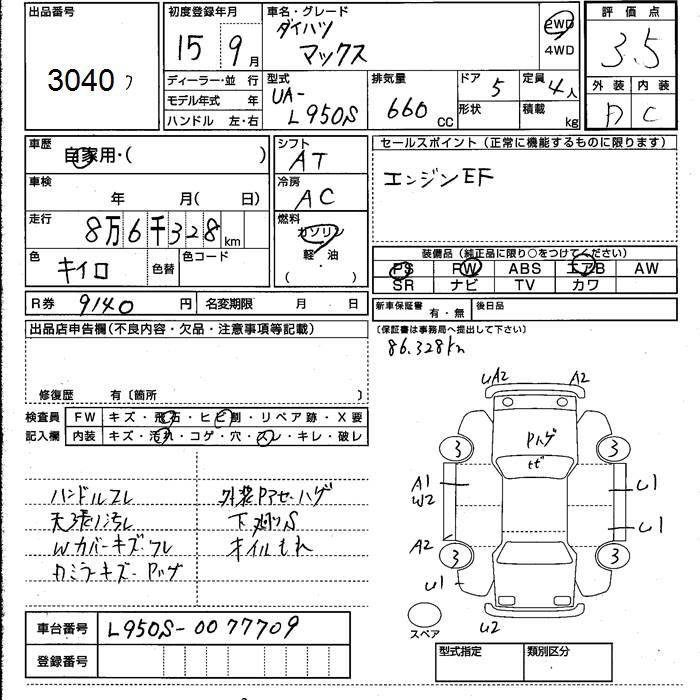 出品番号
3040 フ
初度登録年月
15年 9月
車名・グレード
ダイハツ
マックス
2WD
4WD
評価点
3.5
外装 内装
D C
ディーラー・並行
モデル年式 年
ハンドル 左・右
型式
UA-
L950S
排気量
660 CC
ドア
5
形状
定員
4人
積載
kg
車歴
自家用・( )
車検
年 月( 日)
走行
8万6千328km
色
キイロ
色替
色コード
シフト
AT
冷房
AC
燃料
ガソリン
軽・油
( )
セールスポイント(正常に機能するものに限ります)
エンジンEF
装備品(純正品に限り○をつけてください)
PS PW ABS エアB AW
SR ナビ TV カワ
R券 9140円 名変期限 月 日
新車保証書 有・無 後日品
(保証書は事務局へ提出して下さい)
86.328km
出品店申告欄(不良内容・欠品・注意事項等記載)
修復歴 有〔箇所 〕
検査員
記入欄
FW キズ・飛石・ヒビ割・リペア跡・X要
内装 キズ・汚れ・コゲ・穴・スレ・キレ・破レ
ハンドルスレ
天張リ汚レ
Wカバーキズ・ワレ
外装Pアセ・ハゲ
下廻りS
オイルもれ
UA2 A2
Pハゲ
ヒビ
3 3
A1
W2
U1
U1
A2
3 3
U1
U2
スペア
車台番号 L950S-0077709
登録番号
型式指定 類別区分